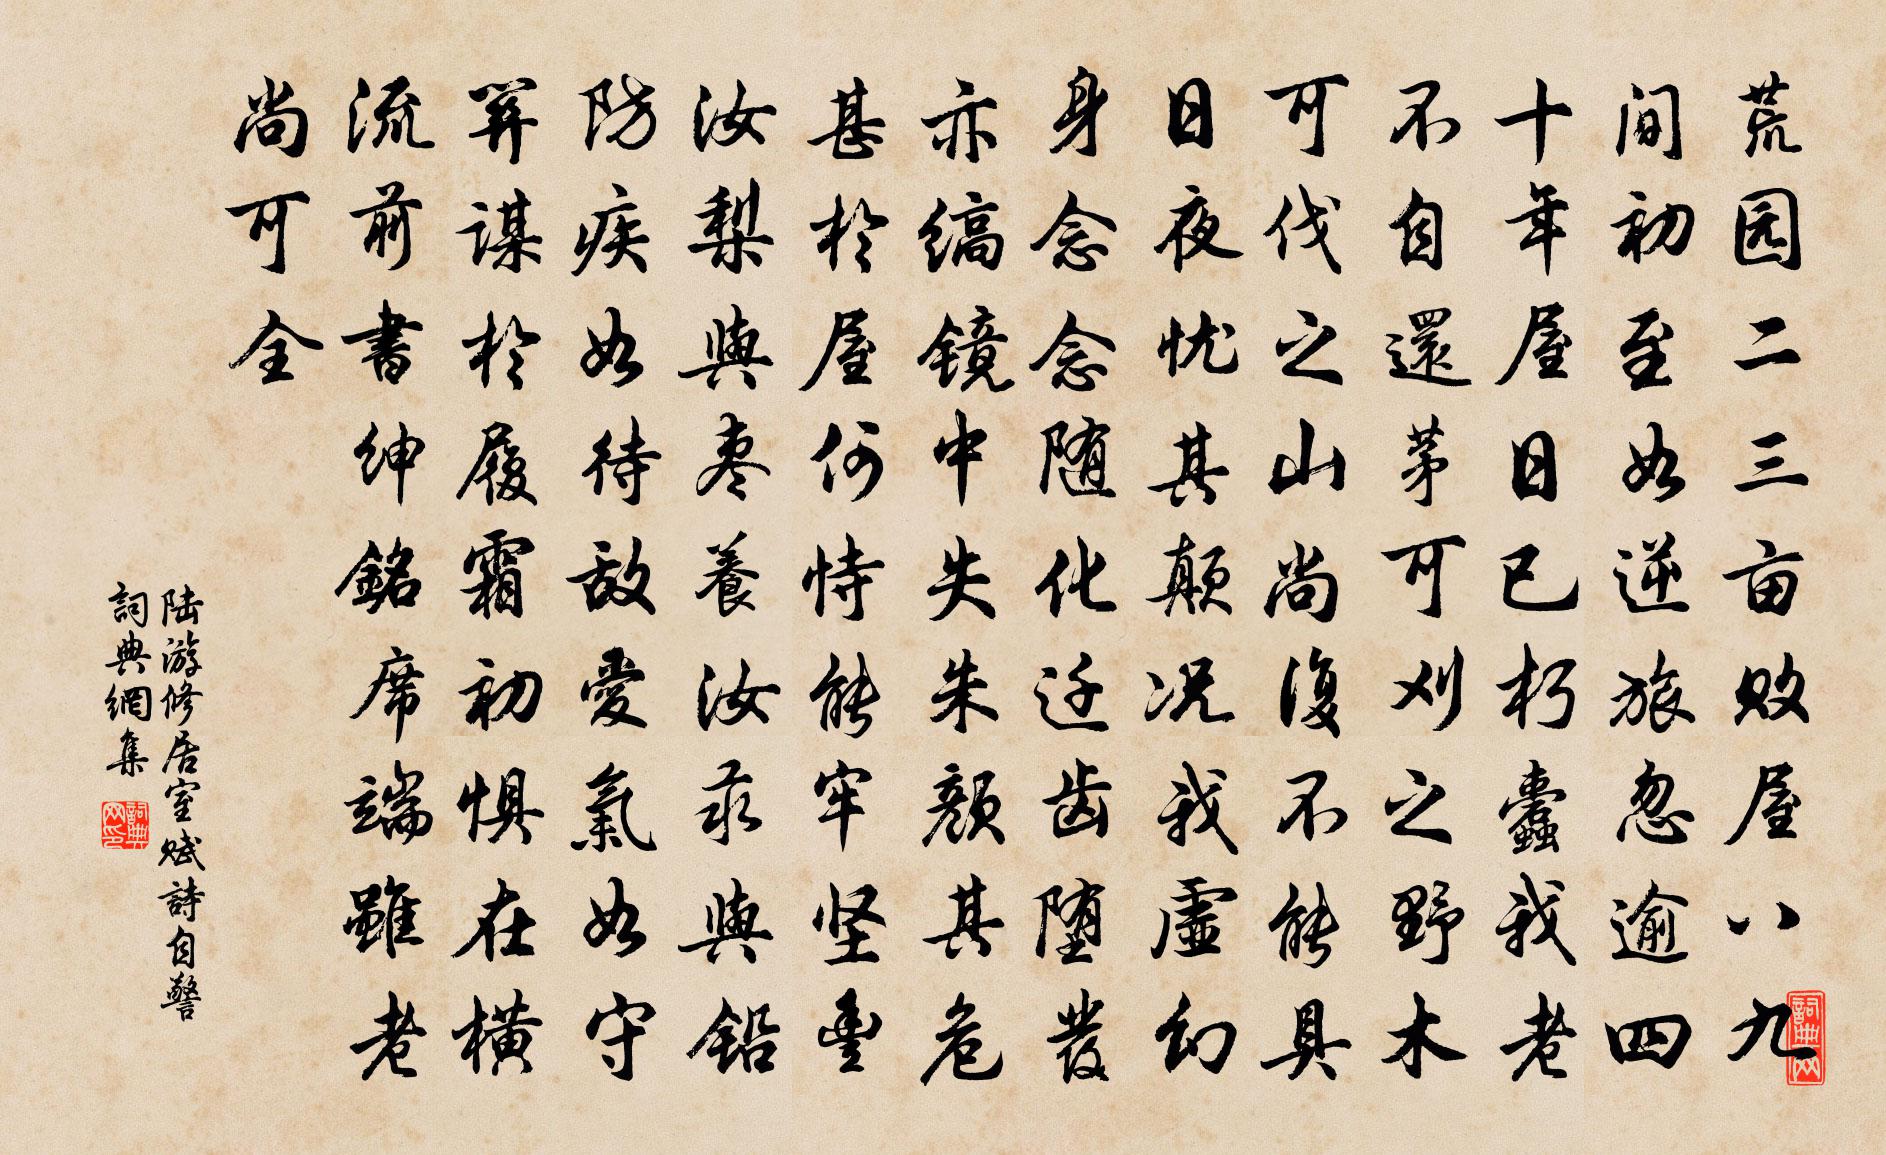 荒园二三亩败屋八九
间初至如逆旅忽逾四
十年屋日已朽蠹我老
不自還茅可刈之野木
可伐之山尚復不能具
日夜忧其颠况我虚幻
身念念随化迁齿堕发
亦缟镜中失朱颜其危
甚於屋何恃能牢坚豊
汝梨與枣養汝汞與铅
防疾如待敌愛氣如守
笄謀於履霜初惧在横
流前書紳銘席端雖老
尚可全
陆游修居室赋詩自警
詞典網集
詞典网印
詞典网